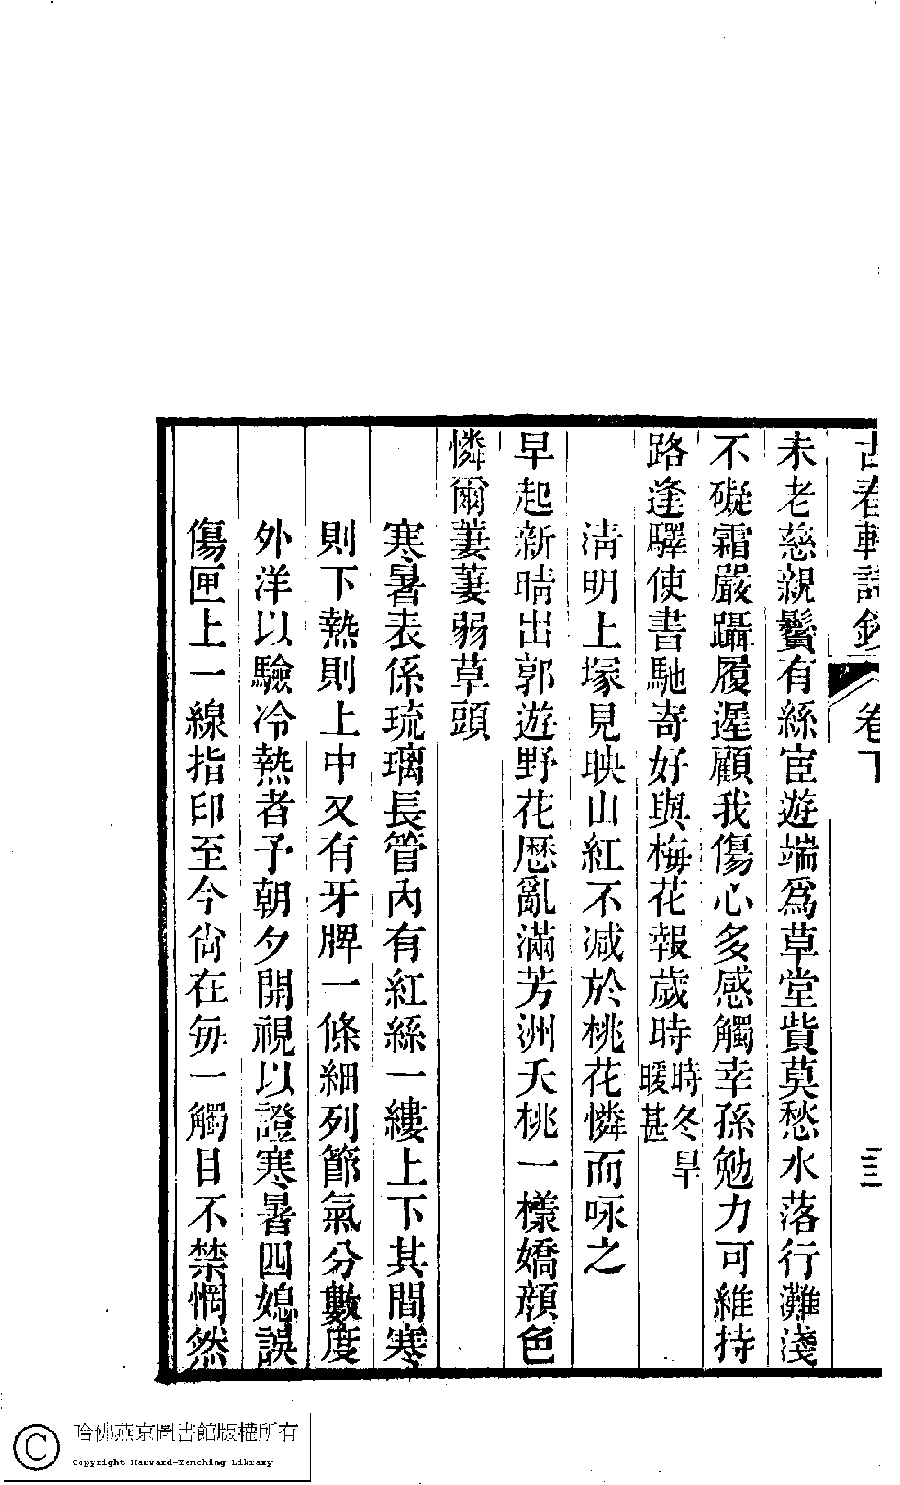 古春軒詩鈔 卷下 三
未老慈親鬢有絲宦遊端爲草堂貲莫愁水落行灘淺
不礙霜嚴躡履遲顧我傷心多感觸幸孫勉力可維持
路逢驛使書馳寄好與梅花報歲時時冬旱暖甚
清明上塚見映山紅不減於桃花憐而咏之
早起新晴出郭遊野花歷亂滿芳洲夭桃一樣嬌顏色
憐爾萋萋弱草頭
寒暑表係琉璃長管內有紅絲一縷上下其間寒
則下熱則上中又有牙牌一條細列節氣分數度
外洋以驗冷熱者予朝夕開視以證寒暑四媳誤
傷匣上一線指印至今尙在每一觸目不禁惘然
哈佛燕京圖書館版權所有
Copyright Harvard-Yenching Library